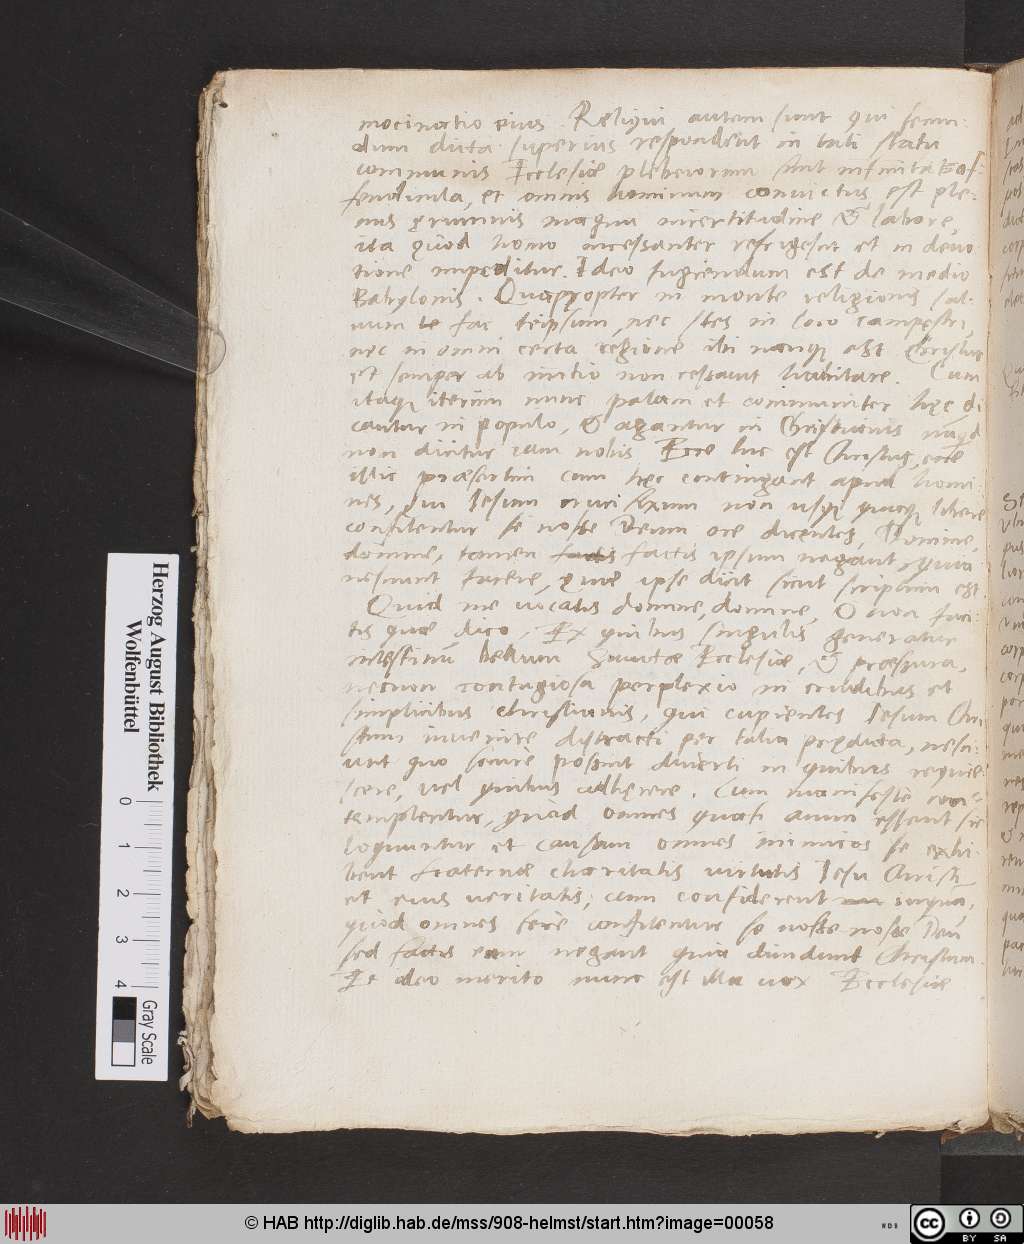 mocinatio eius. Reliqui autem sunt qui secun-
dum dicta superius respondent in tali statu
communis Ecclesiæ plebeiorum sunt infinita of-
fendicula, et omnis hominum convictus est ple-
nus ęrumnis magna incertitudine & labore,
ita quòd homo incessanter refrigescit et in devo
tione impeditur. Ideo fugiendum est de medio
Babylonis. Quapropter in monte religionis sal-
uum te fac teipsum, nec stes in loco campestri,
nec in omni certa regione ibi nanque est Christus
et semper ab initio non cessauit habitare. Cum
itaque iterum nunc palam et communiter hęc di
cantur in populo, & agantur in Christianis
non dicitur iam nobis Ecce hic est Christus, ecce
illic præsertim cum hęc contingant apud homi
nes, qui Iesum crucifixum non usque quaque libere
confitentur se nosse Deum ore dicentes, Domine,
domine, tamen factis ipsum negant, quia
nesciunt facere, quæ ipse dicit sicut scriptum est
Quid me vocatis domine, domine, & non faci-
tis quæ dico, Ex quibus singulis generatur
intestinũ bellum Sanctæ Ecclesiæ, & præssura,
necnon contagiosa perplexio in crudibus et
simplicibus christianis, qui cupientes Iesum Chri
stum inuenire distracti per talia prędicta, nesci-
unt quo scire possint diuerti in quibus requie-
scere, vel quibus adhęrere. Cum manifestè con-
templentur, quòd omnes quasi amici essent sic
loquuntur et causam omnes inimicos se exhi-
bent fraternæ charitatis virtutis Iesu Christi
et eius veritatis; cum considerent inquam,
quòd omnes ferè confitentur se nosse Deũ
sed factis eum negant quia diuidunt Christum.
Et ideo merito nunc est illa vox Ecclesiæ
Herzog August Bibliothek
Wolfenbüttel
0 1 2 3 4
Gray Scale
© HAB http://diglib.hab.de/mss/908-helmst/start.htm?image=00058
WDB
cc BY SA